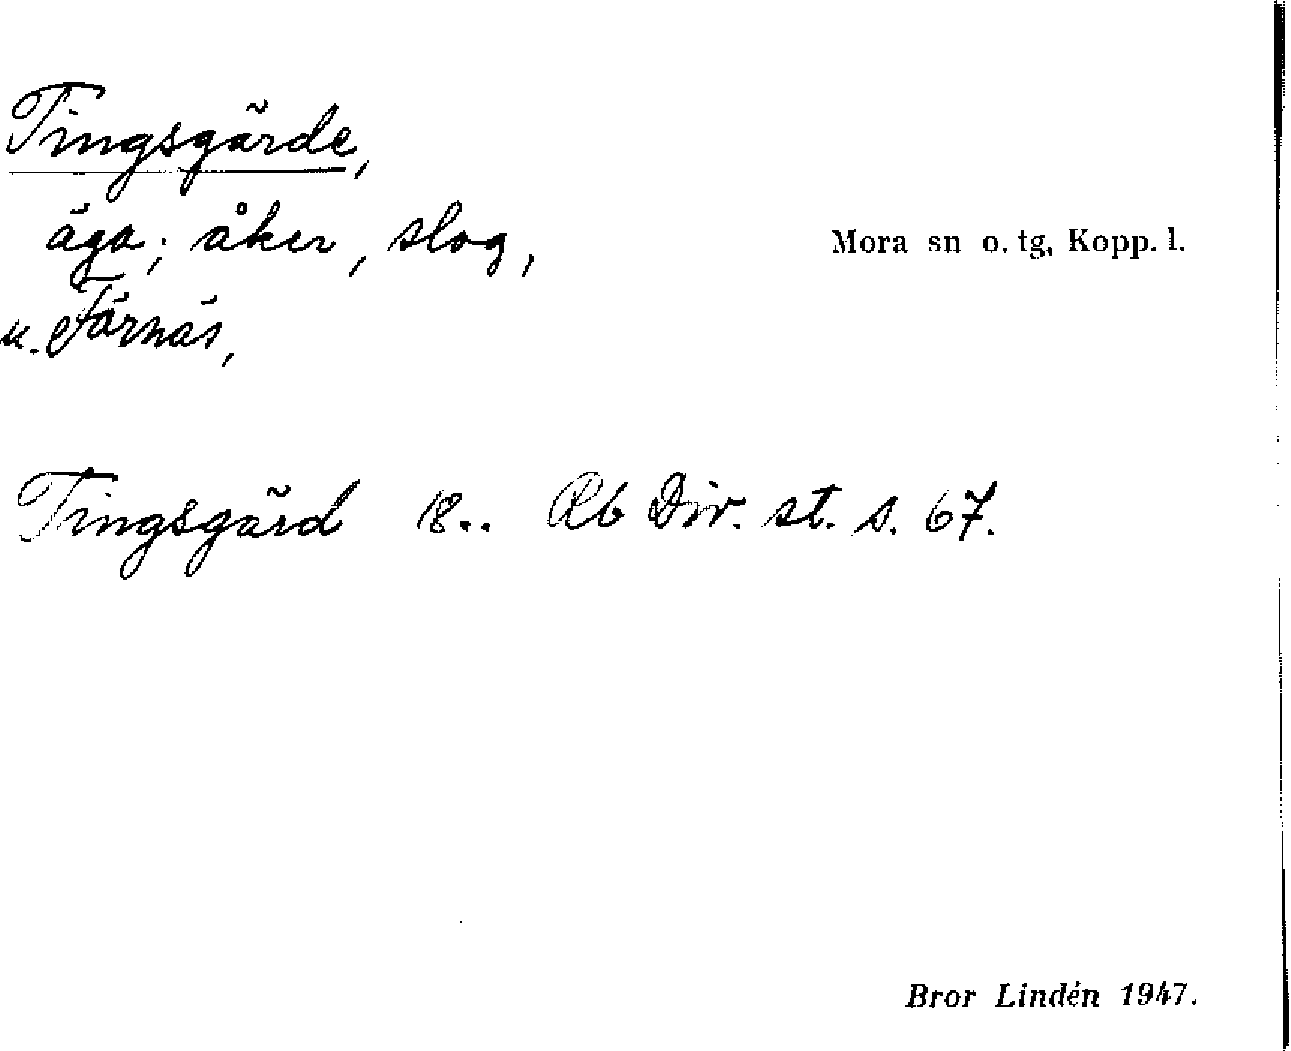 Tingsgärde,
äga; åker, slog,
Mora sn o. tg, Kopp. l.
u. Färnäs,
Tingsgärd 18.. Rb Div. st. s. 67.
Bror Lindén 1947.